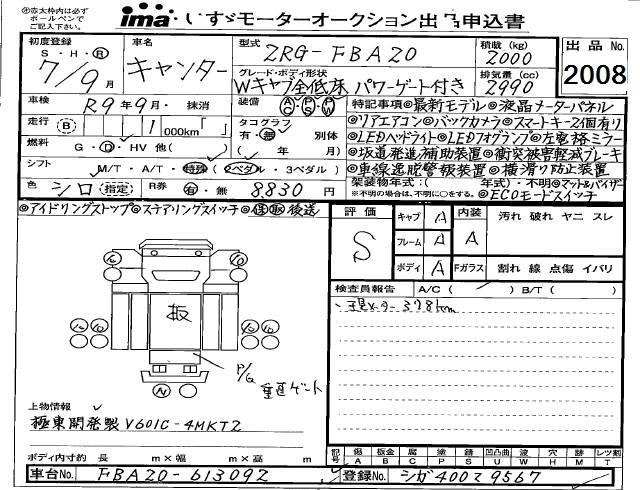 ※赤太枠内は必ず
ボールペンで
ご記入下さい。
ima いすゞモーターオークション出品申込書
初度登録 S・H・R 7/9月
車名 キャンター
型式 2RG-FBA20
積載(kg) 2000
出品No. 2008
グレード・ボディ形状 Wキャブ全低床 パワーゲート付き
排気量(cc) 2990
車検 R9年9月・抹消
装備 AC PS PW
特記事項◎最新モデル◎液晶メーターパネル
走行 B 1 000km
タコグラフ 有・無 別体
◎リアエアコン◎バックカメラ◎スマートキー2個有り
燃料 G・D・HV 他( )
( 年 月)
◎LEDヘッドライト◎LEDフォグランプ◎左電格ミラー
シフト M/T・A/T・特殊(2ペダル・3ペダル)
◎坂道発進補助装置◎衝突被害軽減ブレーキ
◎車線逸脱警報装置◎横滑り防止装置
色 シロ(指定)
R券 有・無 8830円
架装物年式:( 年式)・不明◎マット&バイザー
※不明の場合は、不明に○をする。 ◎ECOモードスイッチ
◎アイドリングストップ◎ステアリングスイッチ◎保取後送
評価 S
キャブ A
フレーム A
ボディ A
内装 A
Fガラス
汚れ 破れ ヤニ スレ
割れ 線 点傷 イバリ
検査員報告 A/C( ) B/T( )
板
N
P/G 垂直ゲート
上物情報
極東開発製 V601C-4MKT2
ボディ内寸約 長 m×幅 m×高 m
記号 傷 A 板金 B 腐 C 塗 P 錆 S 凹凸曲 U 波 W 穴 H 跡 M レツ割 T
車台No. FBA20-613092
登録No. シガ400て9567